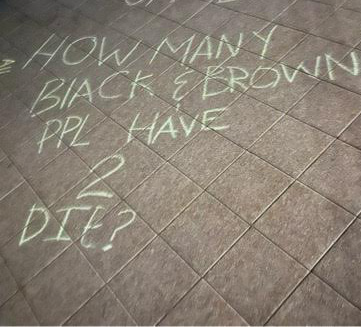 HOW MANY
BlACK & BROWN
PPL HAVE
2
DIE?